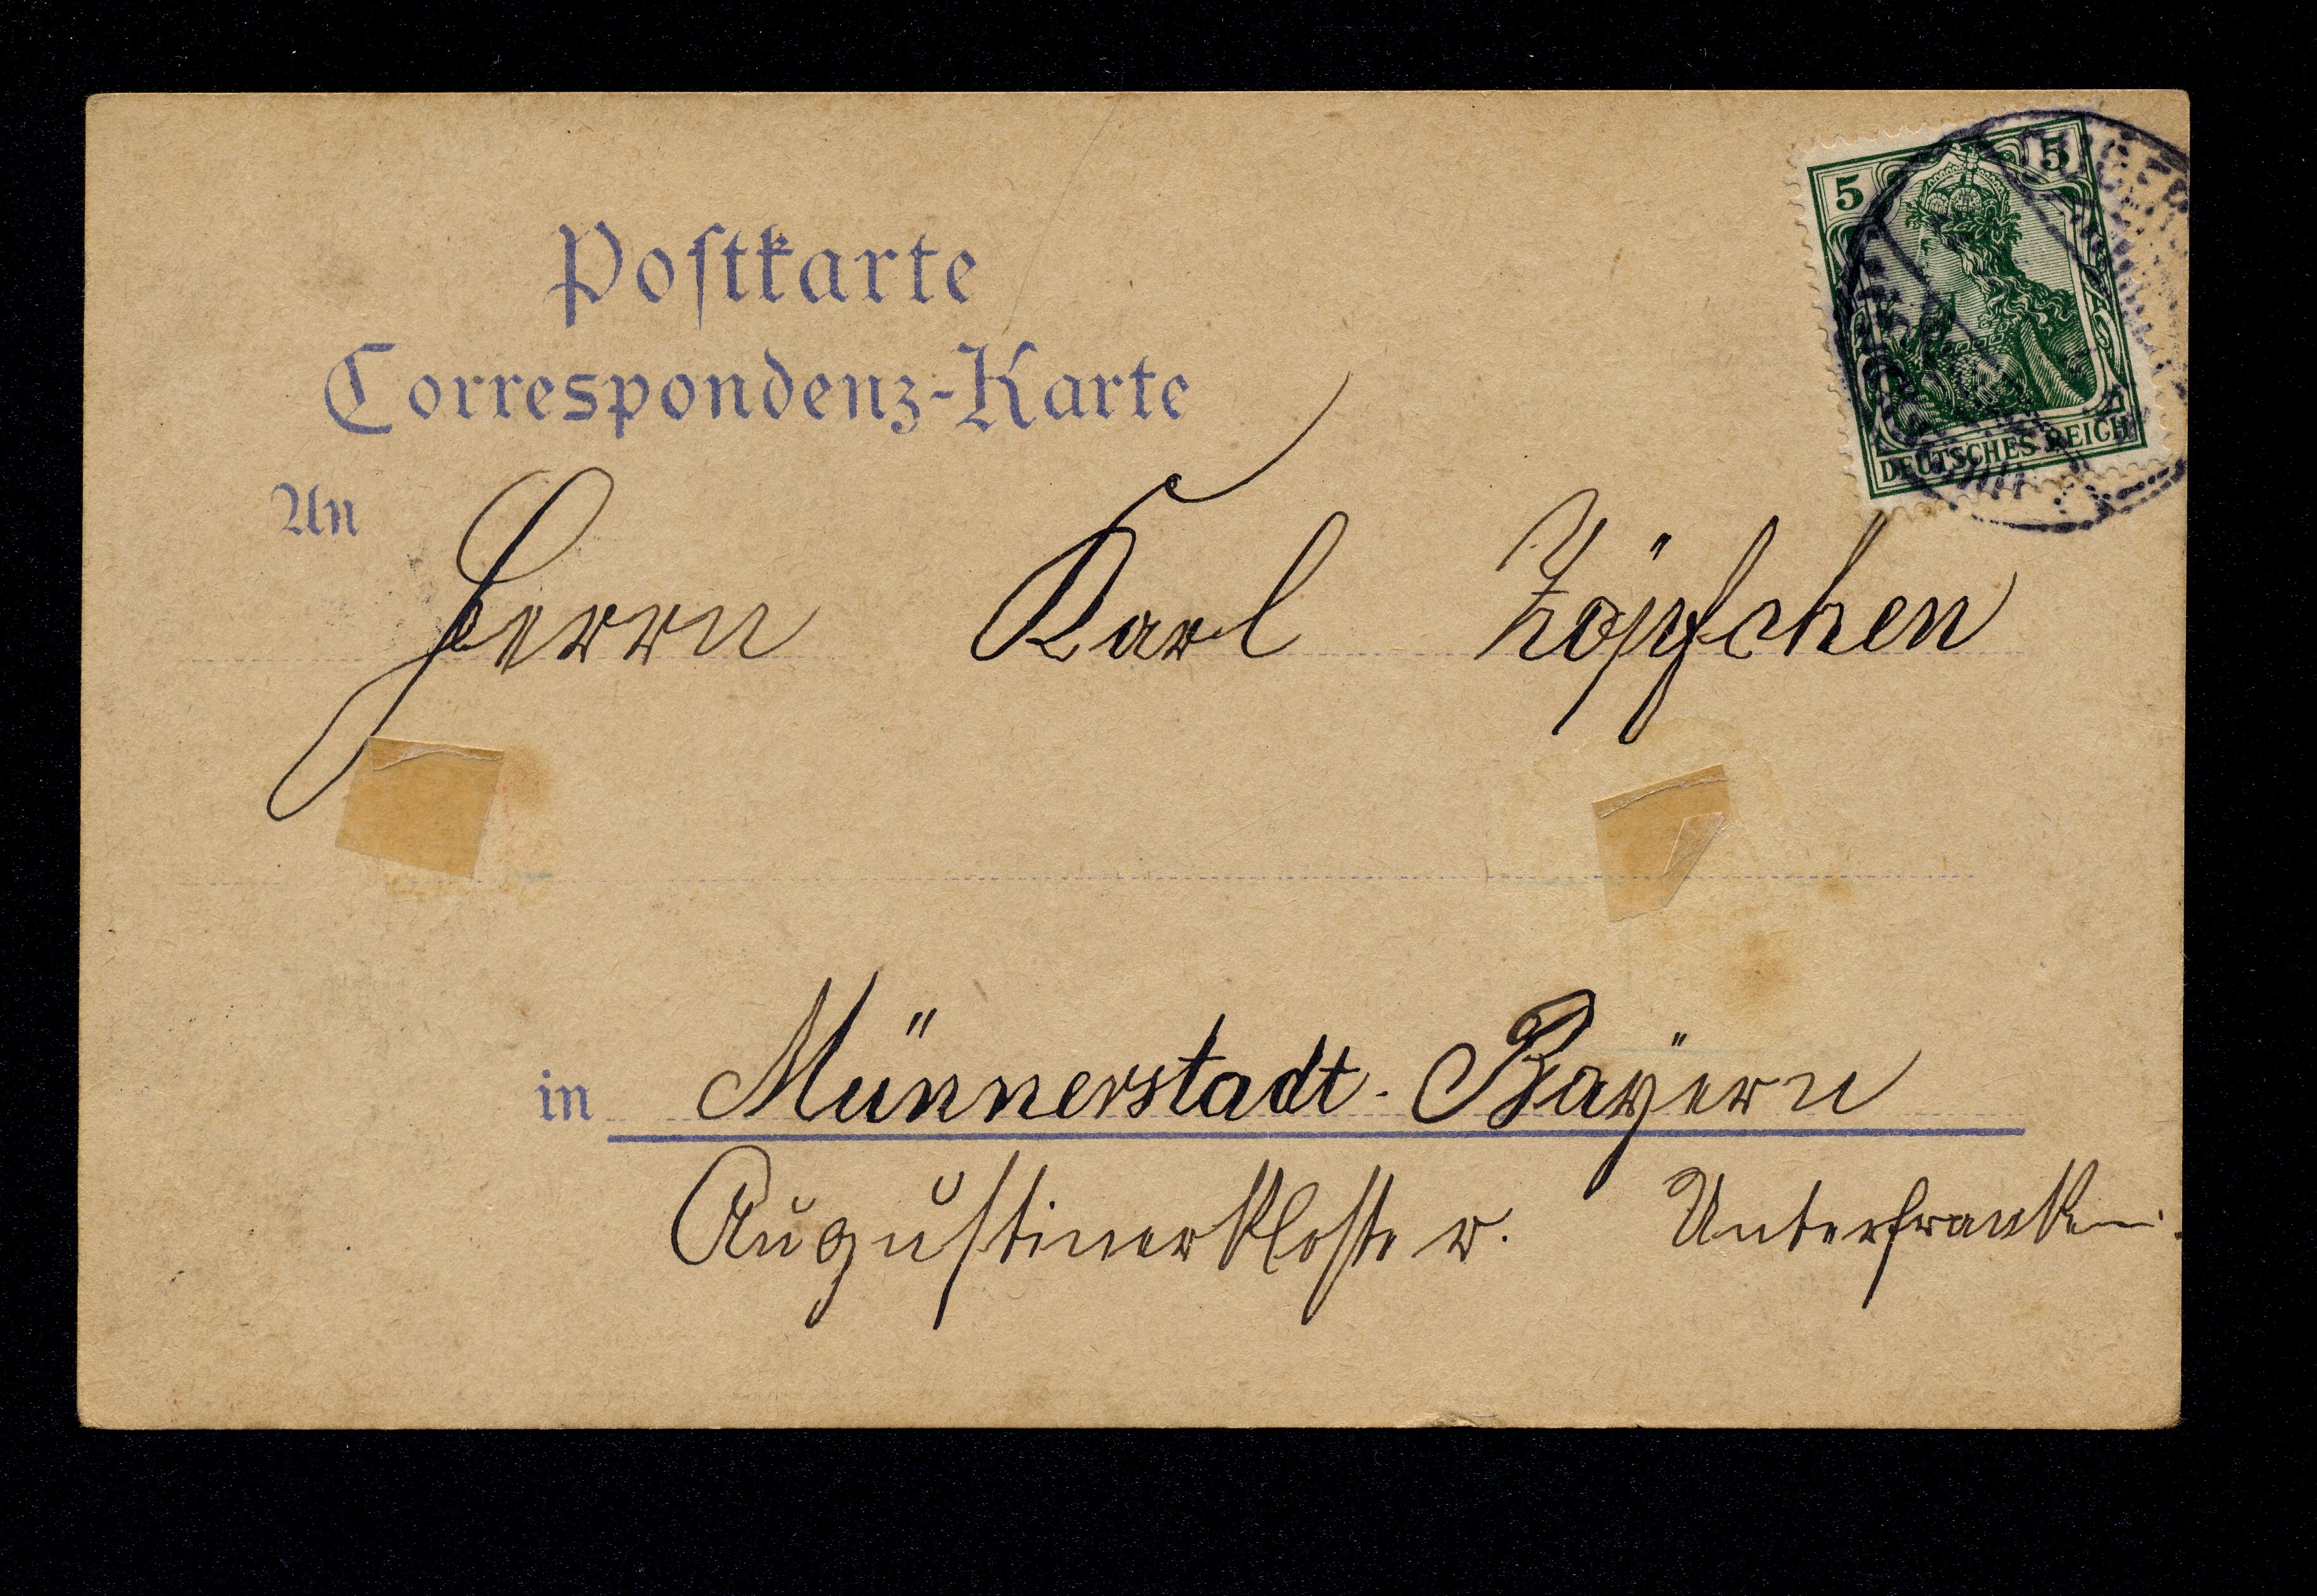 5 5
DEUTSCHES REICH
Postkarte
Correspondenz-Karte
An
Herrn Karl Zöpfchen
in Münnerstadt. Baÿern
Augustinerkloster. Unterfranken.